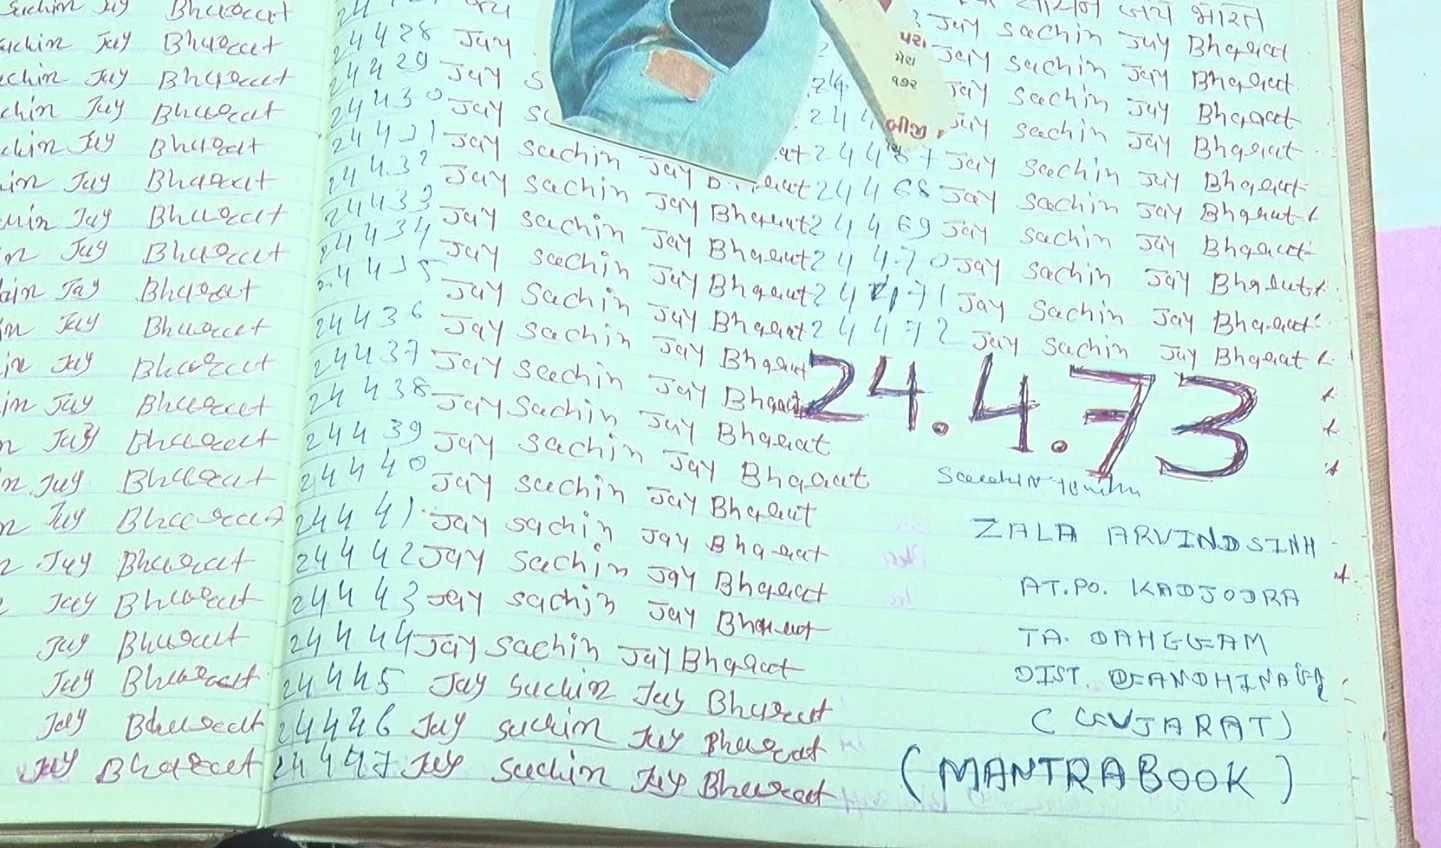 Sachin Jay Bharat
Sachin Jay Bharat
Sachin Jay Bharat
chin Jay Bharat
chin Jay Bharat
in Jay Bharat
hin Jay Bharat
in Jay Bharat
hin Jay Bharat
in Jay Bharat
in Jay Bharat
in Jay Bharat
n Jay Bharat
n Jay Bharat
n Jay Bharat
Jay Bharat
Jay Bharat
Jay Bharat
Jay Bharat
Jay Bharat
Jay Bharat
24428 Jay
24429 Jay S
24430 Jay Sa
24431 Jay Sachin Jay B
24432 Jay Sachin Jay Bharat
24433 Jay Sachin Jay Bharat
24434 Jay Sachin Jay Bharat
24435 Jay Sachin Jay Bharat
24436 Jay Sachin Jay Bharat
24437 Jay Sachin Jay Bharat
24438 Jay Sachin Jay Bharat
24439 Jay Sachin Jay Bharat
24440 Jay Sachin Jay Bharat
24441 Jay Sachin Jay Bharat
24442 Jay Sachin Jay Bharat
24443 Jay Sachin Jay Bharat
24444 Jay Sachin Jay Bharat
24445 Jay Sachin Jay Bharat
24446 Jay Sachin Jay Bharat
24447 Jay Sachin Jay Bharat
મેરા
૧૭૨
બીજી
જય ભારત
Jay Sachin Jay Bharat
Jay Sachin Jay Bharat
Jay Sachin Jay Bharat
Jay Sachin Jay Bharat
24467 Jay Sachin Jay Bharat
24468 Jay Sachin Jay Bharat
24469 Jay Sachin Jay Bharat
24470 Jay Sachin Jay Bharat
24471 Jay Sachin Jay Bharat
24472 Jay Sachin Jay Bharat
24.4.73
ZALA ARVINDSINH
AT.PO. KADJODRA
TA. DAHEGAM
DIST. GANDHINAGAR
(GUJARAT)
(MANTRABOOK)